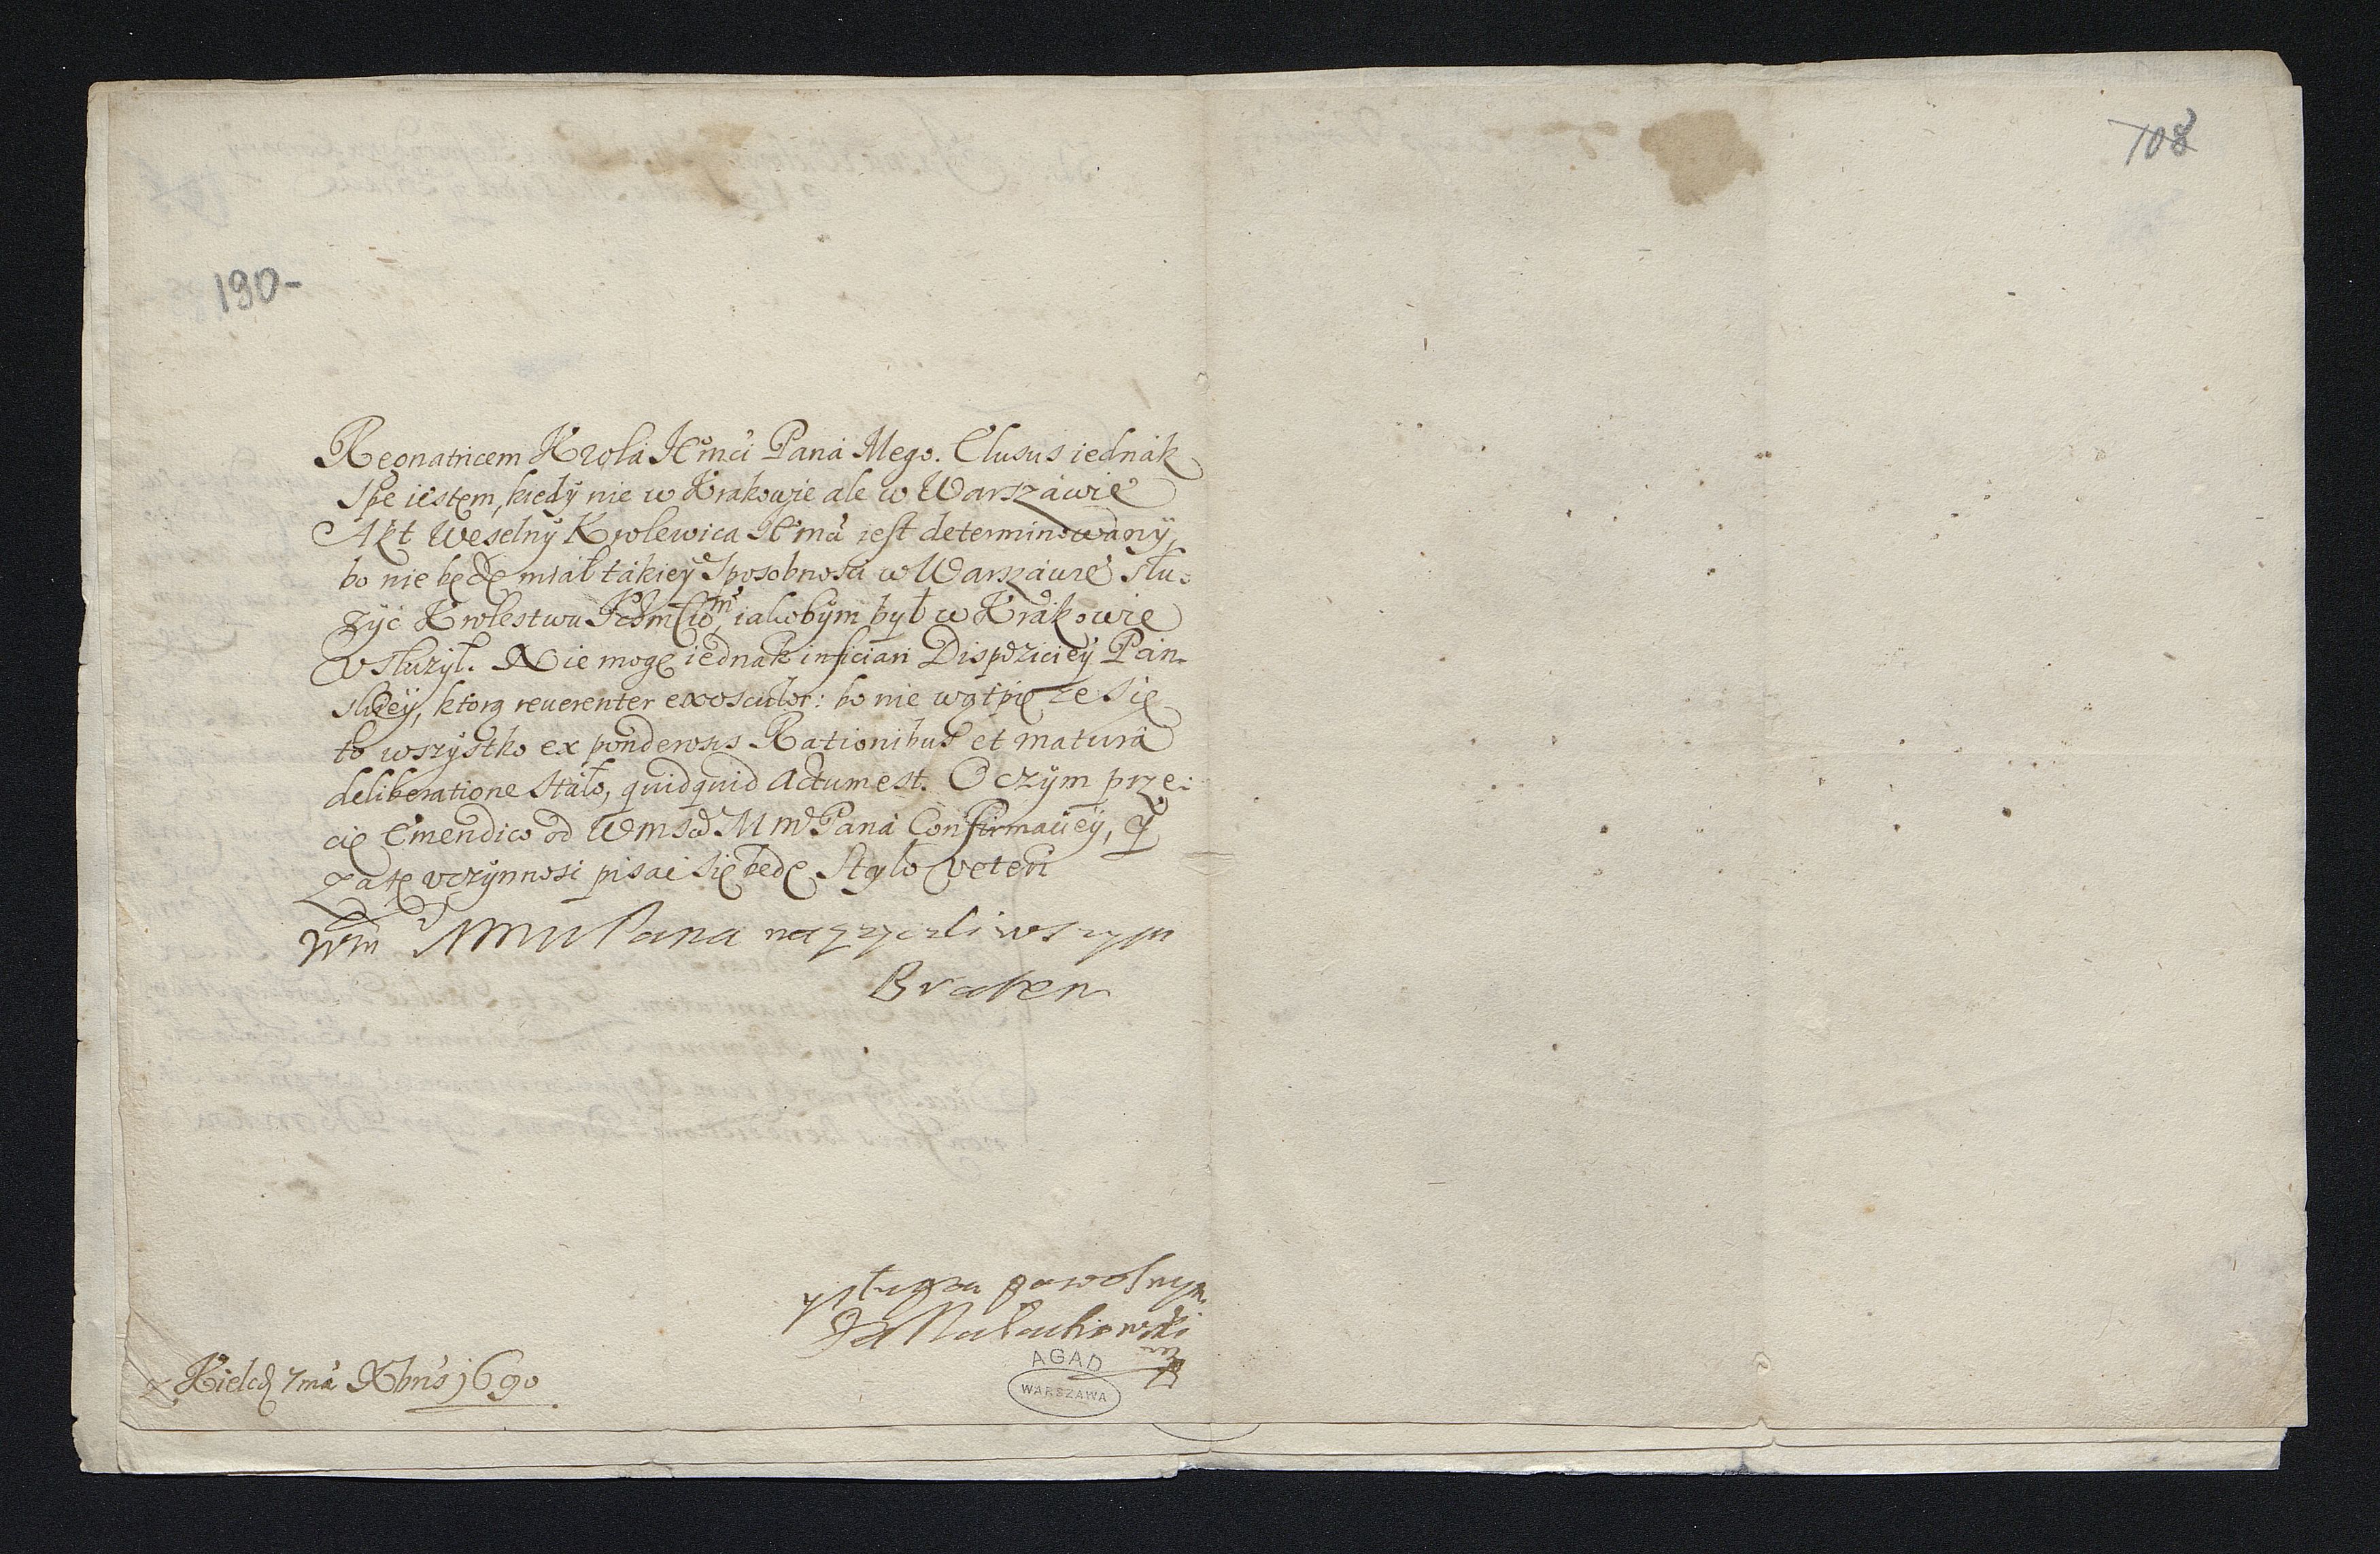 108
190-
Regnatricem Krola JE͠mci Pana Mego. Elusus iednak
Spe iestem, kiedy nie w Krakowie ale w Warszawie
Akt Weselny Krolewica JE͠mci iest determinowany,
bo nie będę miał takiey Sposobnosci w Warszawie słu:
zyć Krolestwu Ich͠mciom, iakobym był w Krakowie
vsłuzył. Nie mogę iednak inficiari Dispoziciey Pan-
skiey, ktorą reuerenter exosculor: bo nie wątpię ze się
to wszystko ex ponderosis Rationibus et matura
deliberatione stało, quidquid actum est. O czym prze:
cię Emendico od WMsci M͠m Pana Confirmaciey, y
za tę vczynnosć pisać się będę Stylo veteri
W͠m M͠m Pana nayzyczliwszym
Bratem
y sługą powolnym
J Małachowski
AGAD
WARSZAWA
z Kielc 7ma Xbris 1690